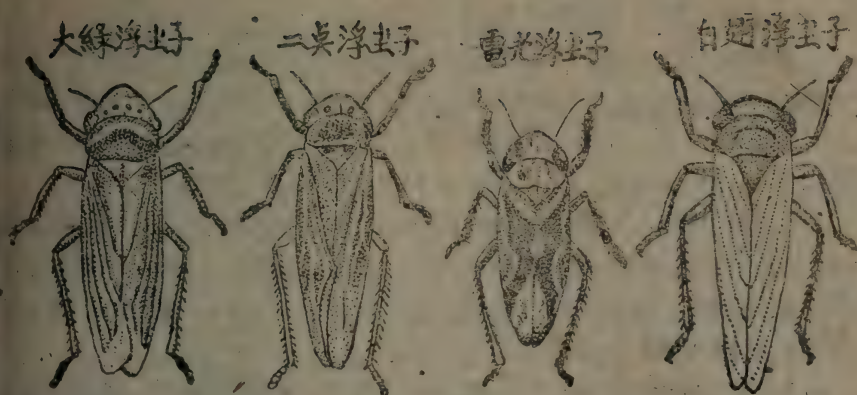 大綠浮尘子 二奌浮尘子 電光浮尘子 白翅浮尘子